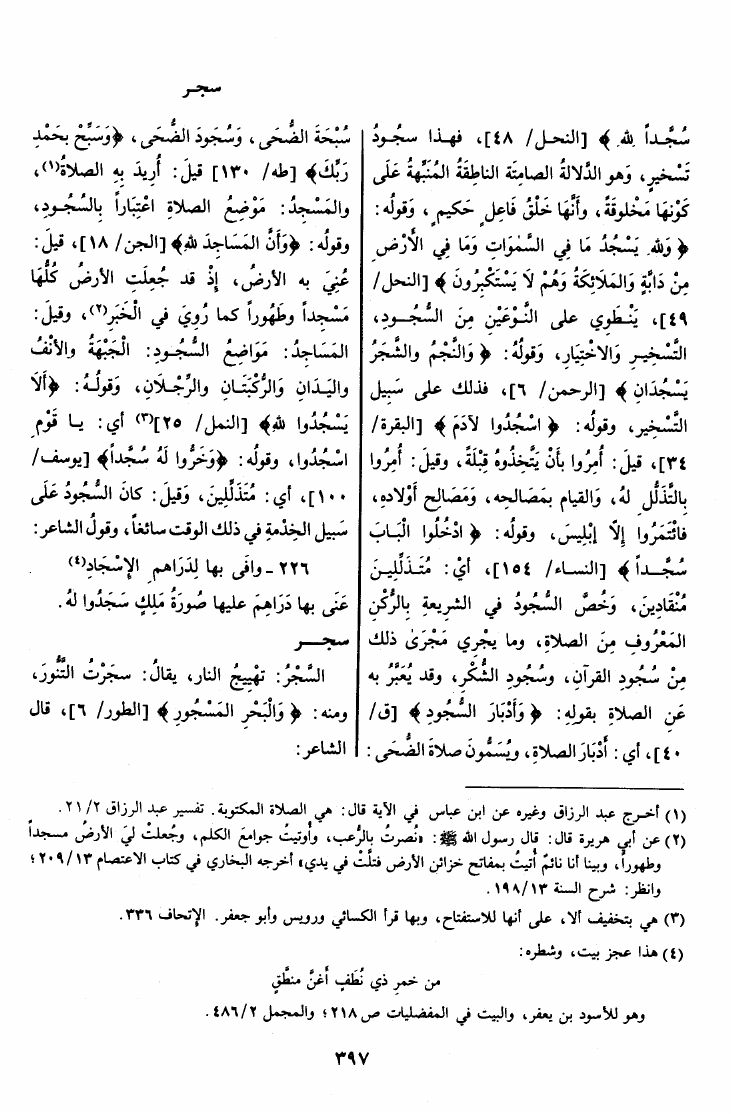 سجر
سُجَّداً لِلَّهِ ﴾ [النحل/ ٤٨]، فهذا سجُودُ
تَسْخيرٍ، وهو الدِّلالةُ الصامِتَة الناطِقَةُ المُنَبِّهةُ عَلَى
كَوْنِهَا مَخْلوقَةً، وأنَّهَا خَلْقُ فَاعلٍ حَكيمٍ، وقولُه:
﴿ وَلِلَّهِ يَسْجُدُ مَا فِي السَّمٰوَاتِ وَمَا فِي الْأَرْضِ
مِنْ دَابَّةٍ وَالمَلَائِكَةُ وَهُمْ لَا يَسْتَكْبِرُونَ ﴾ [النحل/
٤٩]، يَنْطَوِي على النَّوْعَيْنِ مِنَ السُّجُودِ،
التَّسْخيرِ وَالاخْتِيَارِ، وقولُهُ: ﴿ وَالنَّجْمُ والشَّجَرُ
يَسْجُدَانِ ﴾ [الرحمن/ ٦]، فذلك على سَبِيل
التَّسْخيرِ، وقولُه: ﴿ اسْجُدُوا لآدَمَ ﴾ [البقرة/
٣٤]، قيلَ: أُمِرُوا بأنْ يَتَّخِذُوهُ قِبْلَةً، وقيلَ: أُمِرُوا
بِالتَّذَلُّلِ لهُ، والقيام بمَصَالِحِه، وَمَصَالِح أوْلَادِه،
فائْتَمَرُوا إِلَّا إبْلِيسَ، وقولُه: ﴿ ادْخُلُوا الْبَابَ
سُجَّداً ﴾ [النساء/ ١٥٤]، أيْ: مُتَذَلِّلِينَ
مُنْقَادِينَ، وَخُصَّ السُّجُودُ في الشريعةِ بالرُّكْنِ
المَعْرُوفِ مِنَ الصلاةِ، وما يجري مَجْرَىٰ ذلك
مِنْ سُجُودِ القرآنِ، وسُجُودِ الشُّكْرِ، وقد يُعَبَّرُ به
عَنِ الصلاةِ بقولِهِ: ﴿ وَأَدْبَارَ السُّجُودِ ﴾ [ق/
٤٠]، أي: أَدْبَارَ الصلاةِ، ويُسَمُّونَ صلاةَ الضُّحَى:
سُبْحَةَ الضُّحَى، وَسُجُودَ الضُّحَى، ﴿وَسَبِّحْ بِحَمْدِ
رَبِّكَ﴾ [طه/ ١٣٠] قيلَ: أُرِيدَ بِهِ الصلاةُ(١)،
والمَسْجِدُ: مَوْضِعُ الصلاةِ اعْتِبَاراً بالسُّجُودِ،
وقولُه: ﴿وَأَنَّ المَسَاجِدَ لله﴾ [الجن/ ١٨]، قيلَ:
عُنِيَ به الأرضُ، إذْ قد جُعِلَتِ الأرضُ كُلُّهَا
مَسْجِداً وطَهُوراً كما رُوِيَ في الْخَبَرِ(٢)، وقيلَ:
المَسَاجِدُ: مَوَاضِعُ السُّجُودِ: الْجَبْهَةُ والأنْفُ
واليَدَانِ وَالرُّكْبَتَانِ والرِّجْلَانِ، وقولُهُ: ﴿أَلَا
يَسْجُدُوا لله﴾ [النمل/ ٢٥](٣) أي: يا قَوْمِ
اسْجُدُوا، وقولُه: ﴿وَخَرُّوا لَهُ سُجَّداً﴾ [يوسف/
١٠٠]، أي: مُتَذَلِّلِينَ، وَقيلَ: كانَ السُّجُودُ عَلَى
سَبِيل الخِدْمةِ في ذلك الوقت سائغاً، وقولُ الشاعر:
٢٢٦ - وافَى بها لِدَرَاهم الإسْجَادِ(٤)
عَنَى بها دَرَاهِمَ عليها صُورَةُ مَلِكٍ سَجَدُوا لهُ.
سجر
السَّجْرُ: تهْيِيجُ النار، يقالُ: سجَرْتُ التَّنُّورَ،
ومنه: ﴿ وَالْبَحْرِ المَسْجُورِ ﴾ [الطور/ ٦]، قال
الشاعر:
(١) أخرج عبد الرزاق وغيره عن ابن عباس في الآية قال: هي الصلاة المكتوبة. تفسير عبد الرزاق ٢١/٢.
(٢) عن أبي هريرة قال: قال رسول الله ﷺ: «نُصرتُ بالرُّعب، وأُوتيتُ جوامعَ الكلم، وجُعلتْ ليَ الأرضُ مسجداً
وطهوراً، وبينا أنا نائمٌ أُتيتُ بمفاتح خزائن الأرض فتلَّتْ في يدي» أخرجه البخاري في كتاب الاعتصام ٢٠٩/١٣؛
وانظر: شرح السنة ١٩٨/١٣.
(٣) هي بتخفيف ألا، على أنها للاستفتاح، وبها قرأ الكسائي ورويس وأبو جعفر. الإتحاف ٣٣٦.
(٤) هذا عجز بيت، وشطره:
من خمرِ ذي نُطَفٍ أغنَّ منطَّقٍ
وهو للأسود بن يعفر، والبيت في المفضليات ص ٢١٨؛ والمجمل ٤٨٦/٢.
٣٩٧